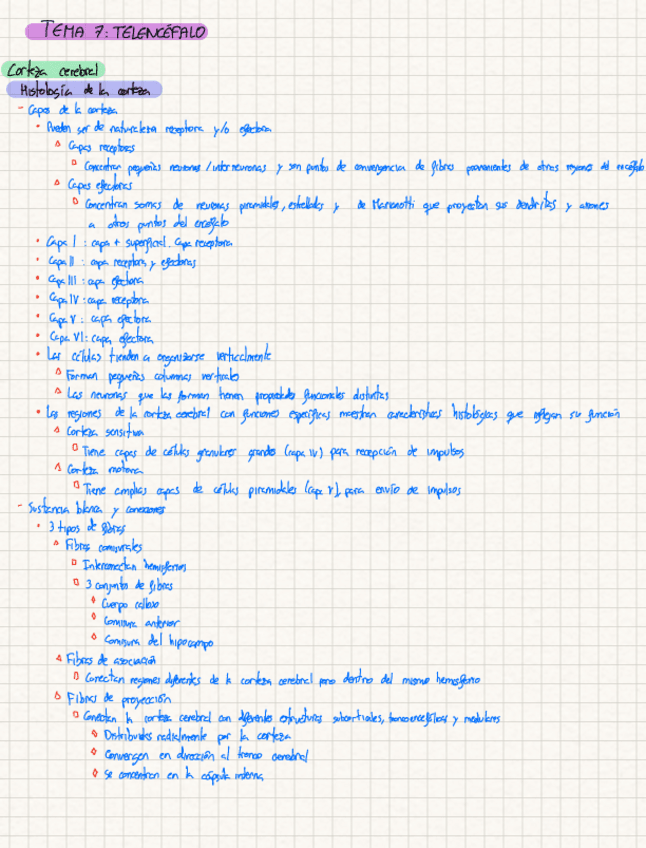 TEMA 7: TELENCÉFALO
Corteza cerebral
Histología de la corteza
- Capas de la corteza
• Pueden ser de naturaleza receptora y/o efectora
Capas receptoras
Concentran pequeñas neuronas / interneuronas y son puntos de convergencia de fibras provenientes de otras regiones del encéfalo
Capas efectoras
Concentran somas de neuronas piramidales, estrelladas y de Martinotti que proyectan sus dendritas y axones
a otros puntos del encéfalo
• Capa I : capa + superficial. Capa receptora
• Capa II : capa receptora y efectoras
• Capa III : capa efectora
• Capa IV : capa receptora
• Capa V : capa efectora
• Capa VI : capa efectora
• Las células tienden a organizarse verticalmente
Forman pequeñas columnas verticales
Las neuronas que las forman tienen propiedades funcionales distintas
• Las regiones de la corteza cerebral con funciones específicas muestran características histológicas que reflejan su función
Corteza sensitiva
Tiene capas de células granulares grande (capa IV) para recepción de impulsos
Corteza motora
Tiene amplias capas de células piramidales (capa V) para envío de impulsos
- Sustancia blanca y conexiones
• 3 tipos de fibras
Fibras comisurales
Interconectan hemisferios
3 conjuntos de fibras
Cuerpo calloso
Comisura anterior
Comisura del hipocampo
Fibras de asociación
Conectan regiones diferentes de la corteza cerebral pero dentro del mismo hemisferio
Fibras de proyección
Conectan la corteza cerebral con diferentes estructuras subcorticales, troncoencefálicas y medulares
Distribuidas radialmente por la corteza
Convergen en dirección al tronco cerebral
Se concentran en la cápsula interna